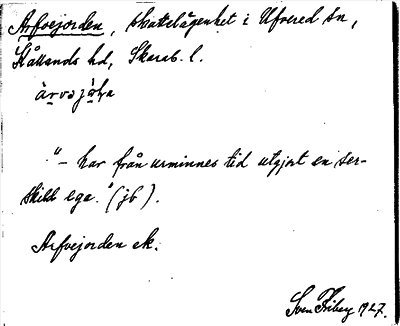 Arfvejorden, skattelägenhet i Ufvered sn,
Kållands hd, Skarab. l.
ärvajoḷa
"– har från urminnes tid utgjort en sär-
skild ega." (jb).
Arfvejorden ek.
Sven Friberg 1927.